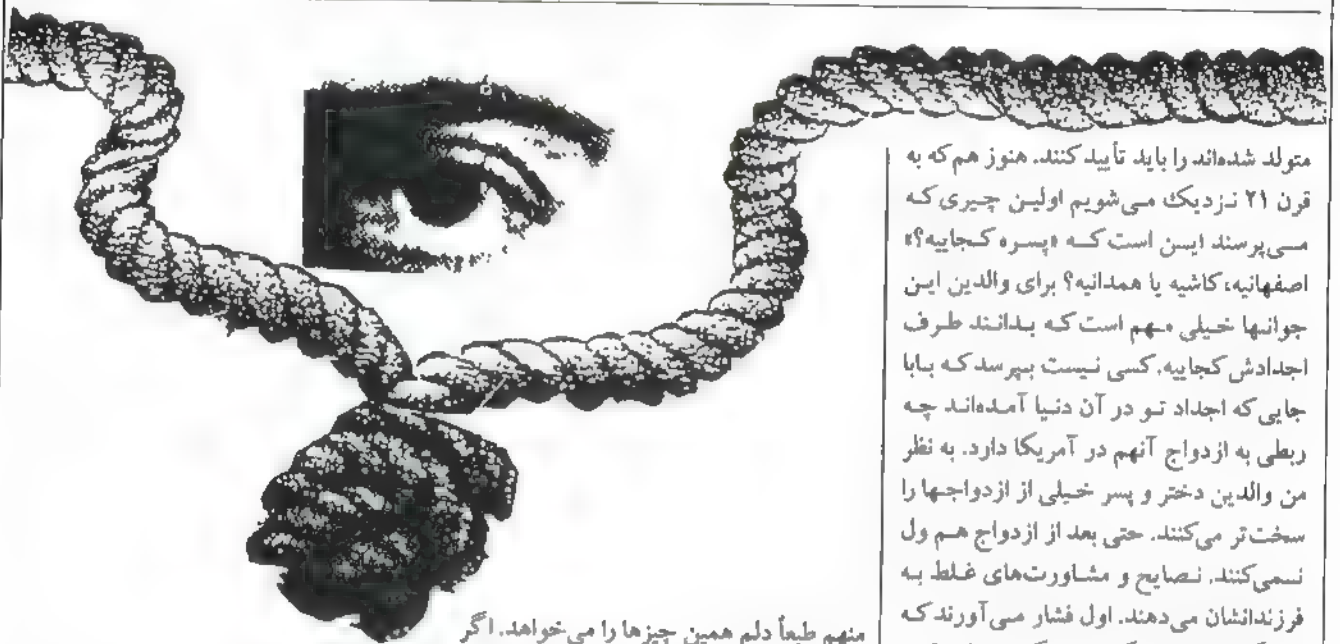 متولد شده‌اند را باید تأیید کنند. هنوز هم که به
قرن ۲۱ نزدیک می‌شویم اولین چیزی که
می‌پرسند این است که «پسره کجاییه؟»
اصفهانیه، کاشیه یا همدانیه؟ برای والدین این
جوانها خیلی مهم است که بدانند طرف
اجدادش کجاییه. کسی نیست بپرسد که بابا
جایی که اجداد تو در آن دنیا آمده‌اند چه
ربطی به ازدواج آنهم در آمریکا دارد. به نظر
من والدین دختر و پسر خیلی از ازدواجها را
سخت‌تر می‌کنند. حتی بعد از ازدواج هم ول
نمی‌کنند. نصایح و مشاورت‌های غلط به
فرزندانشان می‌دهند. اول فشار می‌آورند که
منهم طبعاً دلم همین چیزها را می‌خواهد. اگر